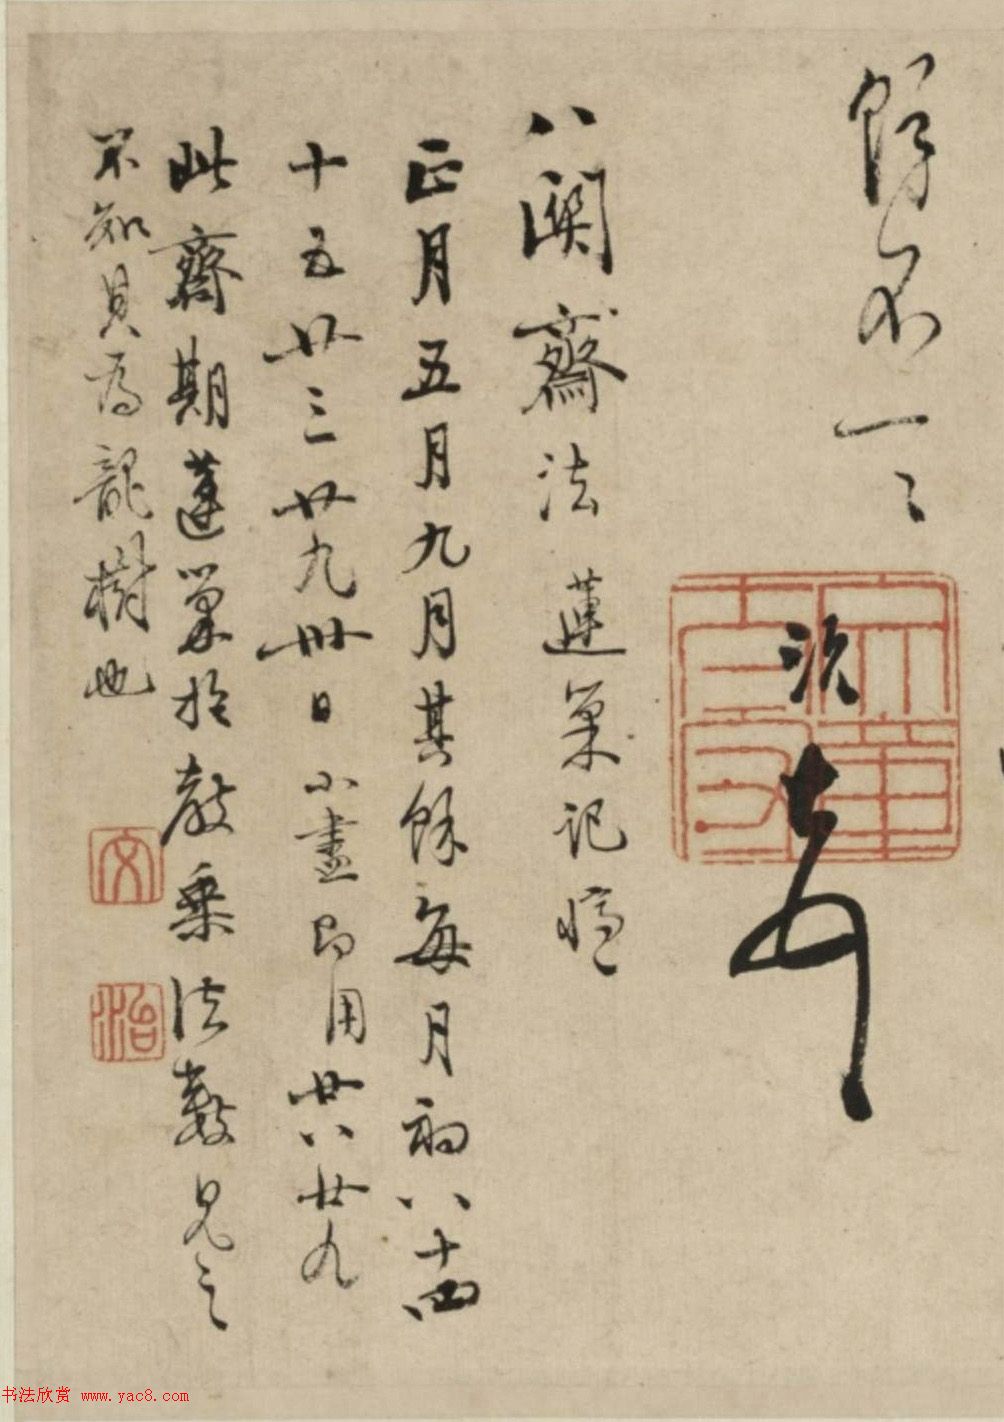 餘不一一
八關齋法 蓮巢記悟
正月五月九月其餘每月初八十四
十五廿三廿九卅日小盡即用廿八廿九
此齋期蓮巢於教乘法數見之
不知具為龍樹也
文
治
书法欣赏 www.yac8.com